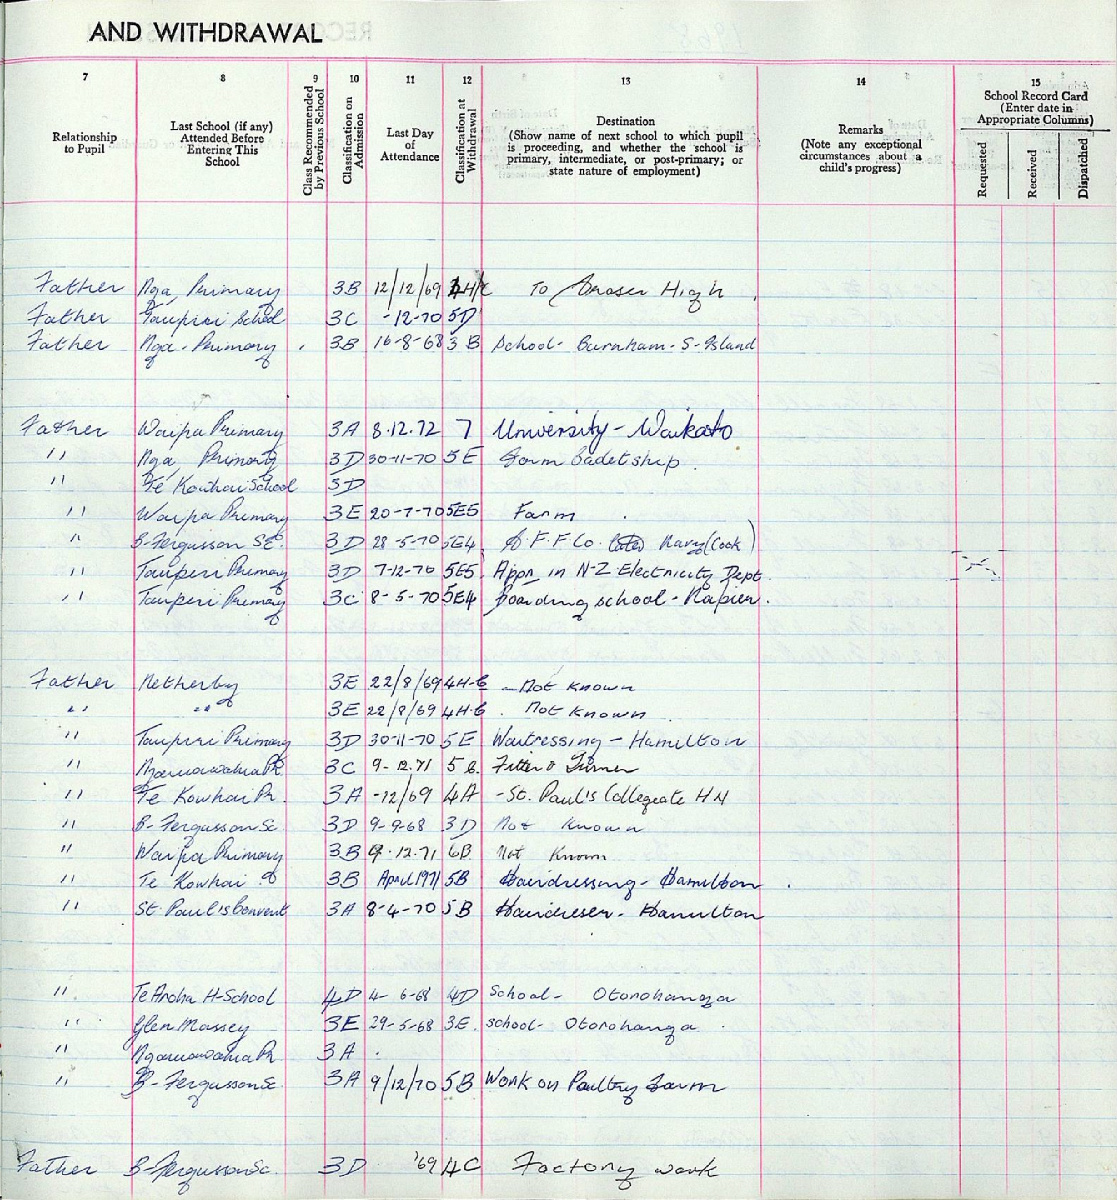 AND WITHDRAWAL
7 8 9 10 11 12 13 14 15
Relationship to Pupil
Last School (if any) Attended Before Entering This School
Class Recommended by Previous School
Classification on Admission
Last Day of Attendance
Classification at Withdrawal
Destination (Show name of next school to which pupil is proceeding, and whether the school is primary, intermediate, or post-primary; or state nature of employment)
Remarks (Note any exceptional circumstances about a child's progress)
School Record Card (Enter date in Appropriate Columns)
Requested Received Dispatched
Father Nga Primary 3B 12/12/69 To Fraser High
Father Taupiri School 3C -12-70 5D
Father Nga - Primary 3B 16-8-68 3B School - Burnham - S-Island
Father Waipa Primary 3A 8.12.72 7 University - Waikato
" Nga Primary 3D 30-11-70 5E Farm Cadetship
" Te Kowhai School 3D
" Waipa Primary 3E 20-7-70 5E5 Farm
" B-Fergusson Sc. 3D 28-5-70 5E4 A.F.F Co. later Navy (Cook)
" Taupiri Primary 3D 7-12-70 5E5 Appr. in N-Z Electricity Dept.
" Taupiri Primary 3C 8-5-70 5E4 Boarding school - Napier.
Father Netherby 3E 22/8/69 4H-C - Not known
" " 3E 22/8/69 4H-C Not known
" Taupiri Primary 3D 30-11-70 5E Waitressing - Hamilton
" Ngaruawahia Pr. 3C 9-12.71 Fitter & Turner
" Te Kowhai Pr. 3A -12/69 4A - St. Paul's Collegiate HN
" B-Fergusson Sc 3D 9-9-68 3D Not known
" Waipa Primary 3B 9.12.71 6B Not known
" Te Kowhai 3B April 1971 5B Hairdressing - Hamilton
" St. Paul's Convent 3A 8-4-70 5B Hairdresser - Hamilton
" Te Aroha H-School 4D 4-6-68 4D School - Otorohanga
" Glen Massey 3E 29-5-68 3E. School - Otorohanga
" Ngaruawahia Pr 3A
" B-Fergusson Sc. 3A 9/12/70 5B Work on Poultry Farm
Father B-Fergusson Sc. 3D '69 4C Factory work